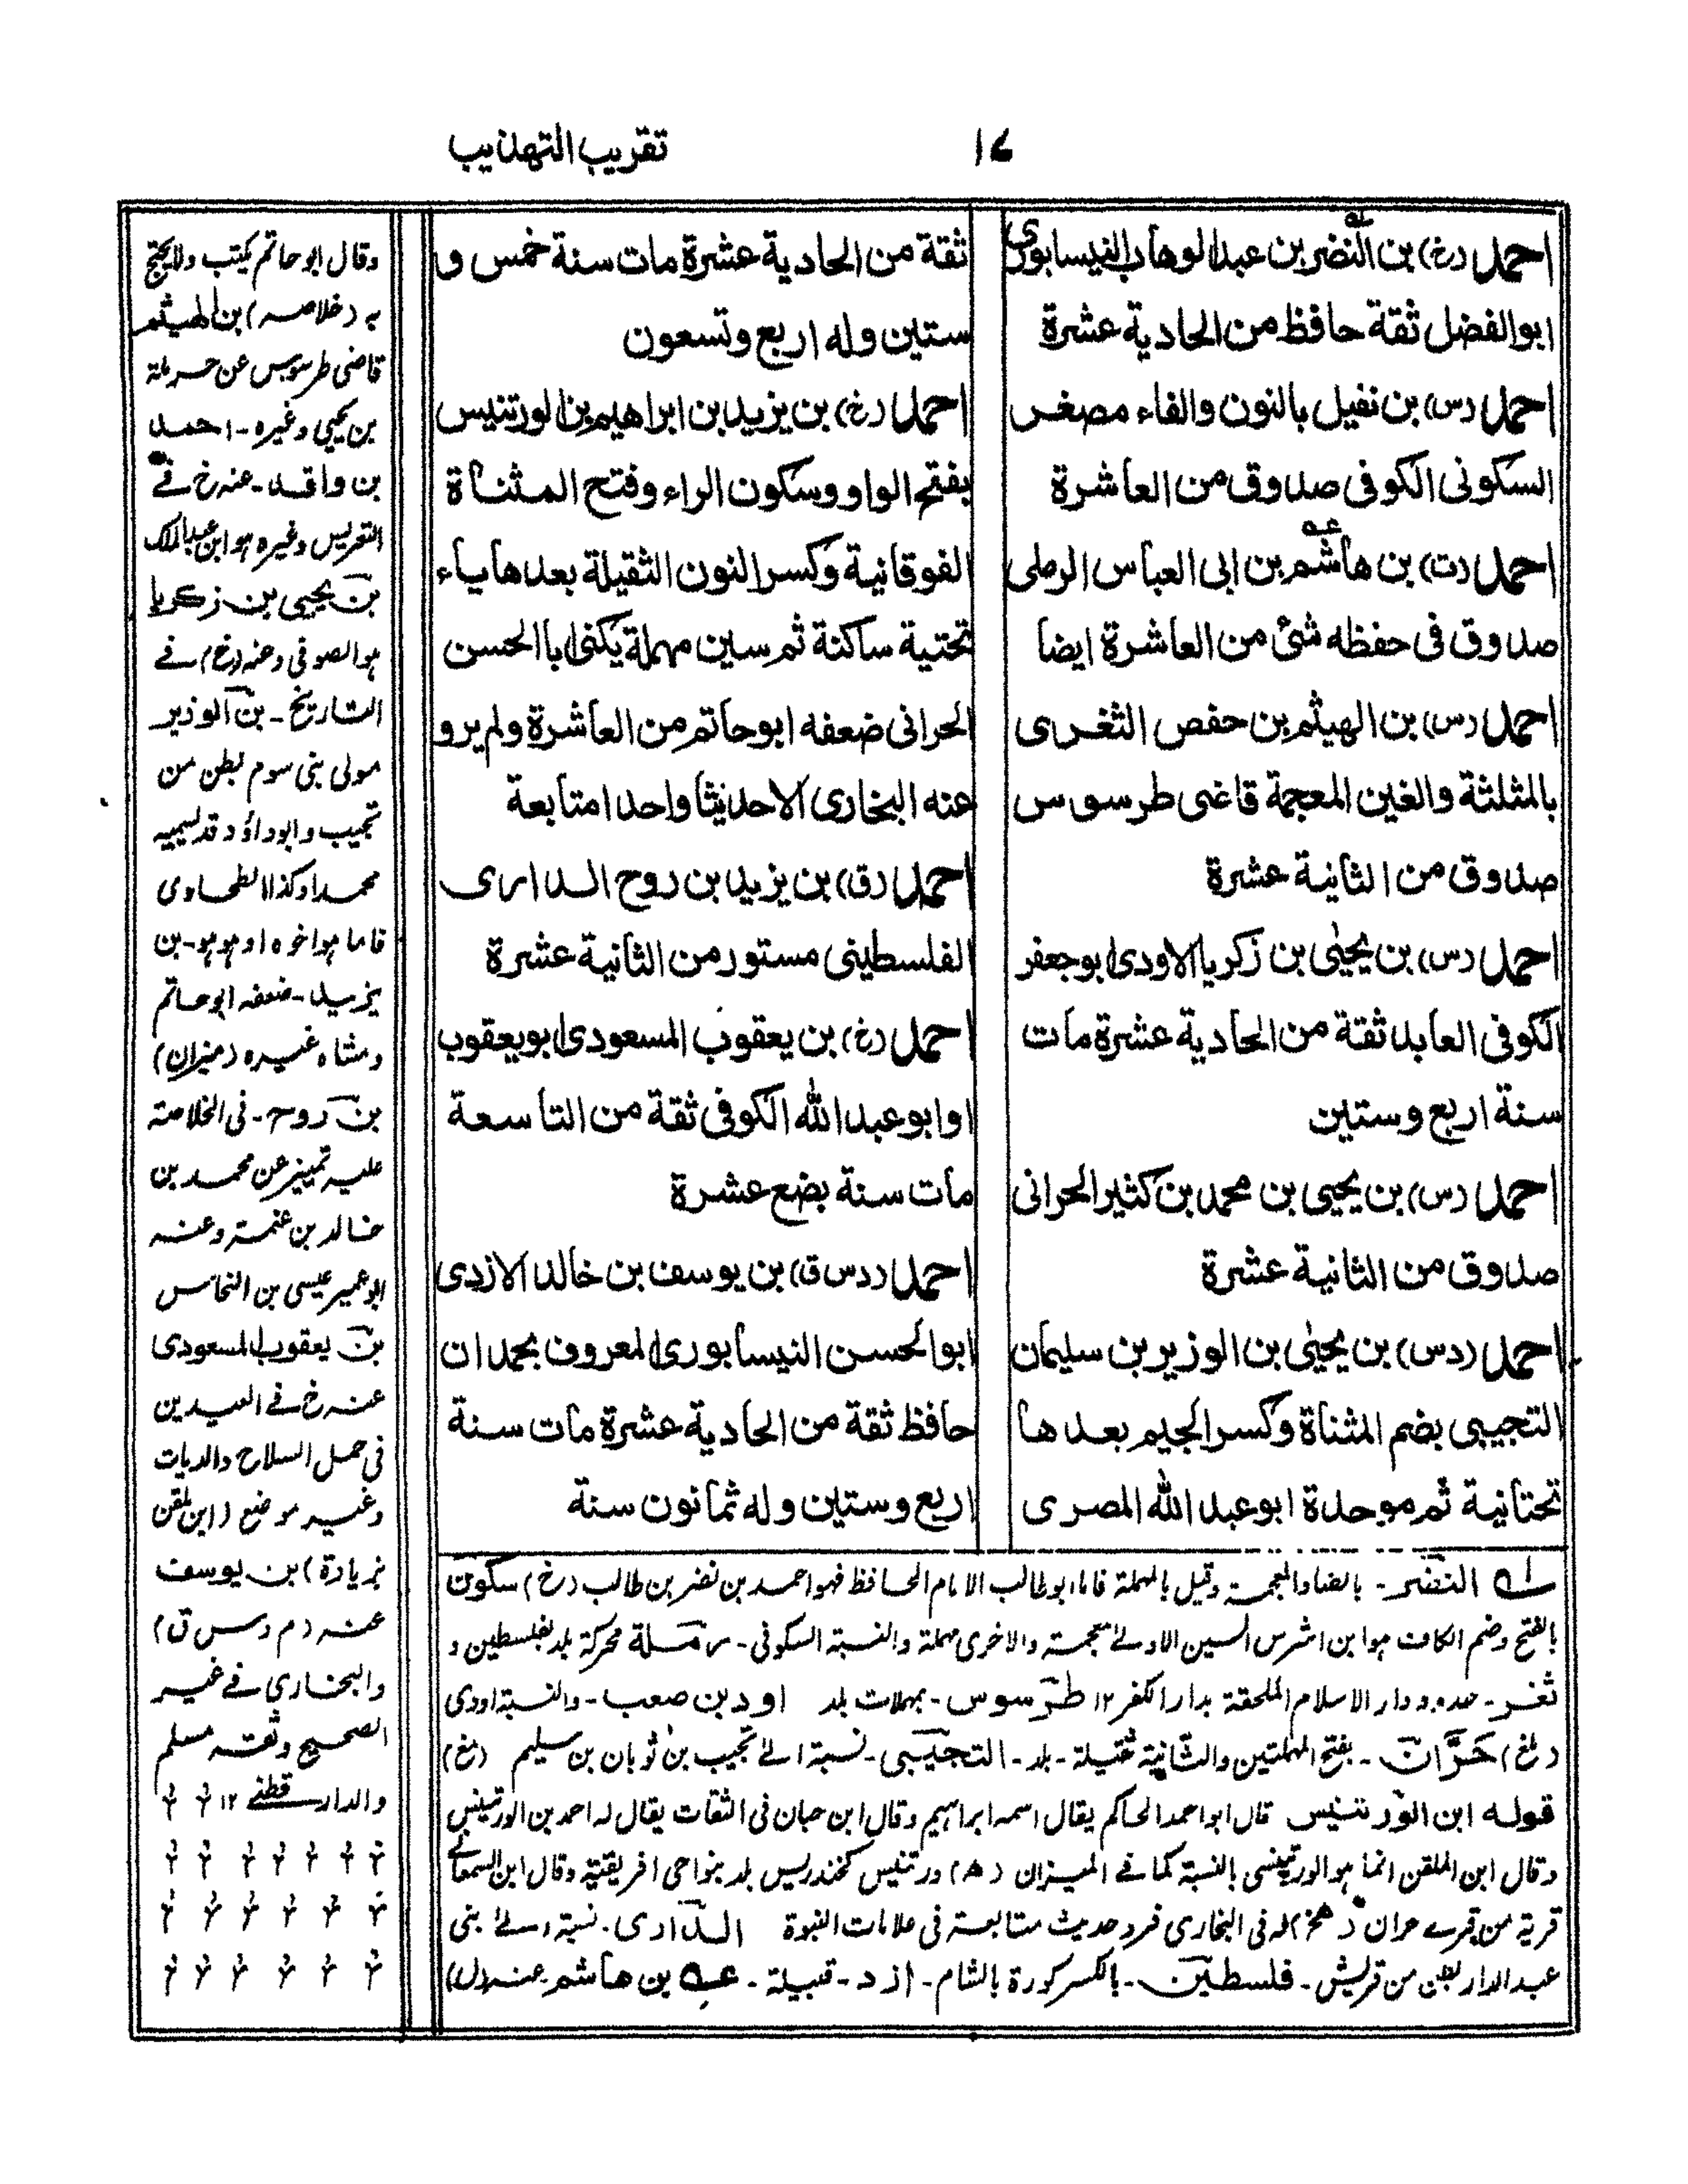 تقريب التهذيب
١٧
احمد (خ) بن النضر بن عبدالوهاب النيسابورى
ابوالفضل ثقة حافظ من الحادية عشرة
احمد (س) بن نفيل بالنون والفاء مصغر
السكونى الكوفى صدوق من العاشرة
احمد (ت) بن هاشم بن ابى العباس الرملى
صدوق فى حفظه شئ من العاشرة ايضا
احمد (س) بن الهيثم بن حفص الثغرى
بالمثلثة والغين المعجمة قاضى طرسوس
صدوق من الثانية عشرة
احمد (س) بن يحيٰى بن زكريا الاودى ابو جعفر
الكوفى العابد ثقة من الحادية عشرة مات
سنة اربع وستين
احمد (س) بن يحيى بن محمد بن كثير الحرانى
صدوق من الثانية عشرة
احمد (دس) بن يحيٰى بن الوزير بن سليمان
التجيبى بضم المثناة وكسر الجيم بعدها
تحتانية ثم موحدة ابو عبد الله المصرى
ثقة من الحادية عشرة مات سنة خمس و
ستين وله اربع وتسعون
احمد (خ) بن يزيد بن ابراهيم بن الورتنيس
بفتح الواو وسكون الراء وفتح المثناة
الفوقانية وكسر النون الثقيلة بعدها ياء
تحتية ساكنة ثم سين مهملة يكنى ابا الحسن
الحرانى ضعفه ابو حاتم من العاشرة ولم يرو
عنه البخارى الا حديثا واحدا متابعة
احمد (ق) بن يزيد بن روح الدارى
الفلسطينى مستور من الثانية عشرة
احمد (خ) بن يعقوب المسعودى ابو يعقوب
او ابو عبد الله الكوفى ثقة من التاسعة
مات سنة بضع عشرة
احمد (دس ق) بن يوسف بن خالد الازدى
ابوالحسن النيسابورى المعروف بحمدان
حافظ ثقة من الحادية عشرة مات سنة
اربع وستين وله ثمانون سنة
وقال ابو حاتم يكتب ولا يحتج
به (خلاصه) بن الهيثم
قاضى طرسوس عن حرملة
بن يحيي وغيره - احمد
بن واقد - عنه خ فى
التعريس وغيره هو ابن عبدالملك
بن يحيى بن زكريا
هو الصوفى وعنه (خ) فى
التاريخ - بن الوزير
مولى بنى سوم بطن من
تجيب وابوداؤد قد يسميه
محمدا وكذا الطحاوى
فاما هو اخوه او هو هو - بن
يزيد - ضعفه ابو حاتم
ومشاه غيره (ميزان)
بن روح - فى الخلاصة
عليه تمييز عن محمد بن
خالد بن عثمة وعنه
ابو عمير عيسى بن النحاس
بن يعقوب المسعودى
عنه خ فى العيدين
فى حمل السلاح والديات
وغير موضع (ابن ملقن
بزيادة) بن يوسف
عنه (م د س ق)
والبخارى فى غير
الصحيح وثقه مسلم
والدار قطنى ١٢
له النضر - بالضاد المعجمة وقيل بالمهملة فاما ابوطالب الامام الحافظ فهو احمد بن نصر بن طالب (خ) سكون
بالفتح وضم الكاف هو ابن اشرس السين الاولى معجمة والاخرى مهملة والنسبة السكونى - رملة محركة بلد بفلسطين و
ثغر - حدود دار الاسلام الملحقة بدار الكفر ١٢ طرسوس - بمهملات بلد اود بن صعب - والنسبة اودى
حرّان - بفتح المهملتين والثانية ثقيلة - بلد - التجيبى - نسبة الى تجيب بن ثوبان بن سليم (مغ)
قوله ابن الورتنيس قال ابو احمد الحاكم يقال اسمه ابراهيم وقال ابن حبان فى الثقات يقال له احمد بن الورتنيس
وقال ابن الملقن انما هو الورتنيسى بالنسبة كما فى الميزان (ه) ورتنيس كخندريس بلد بنواحى افريقية وقال ابن السمعانى
قرية من قرى حران له فى البخارى فرد حديث متابعة فى علامات النبوة الدارى - نسبة الى بنى
عبد الدار بطن من قريش - فلسطين - بالكسر كورة بالشام - ازد - قبيلة - عه بن هاشم عنه